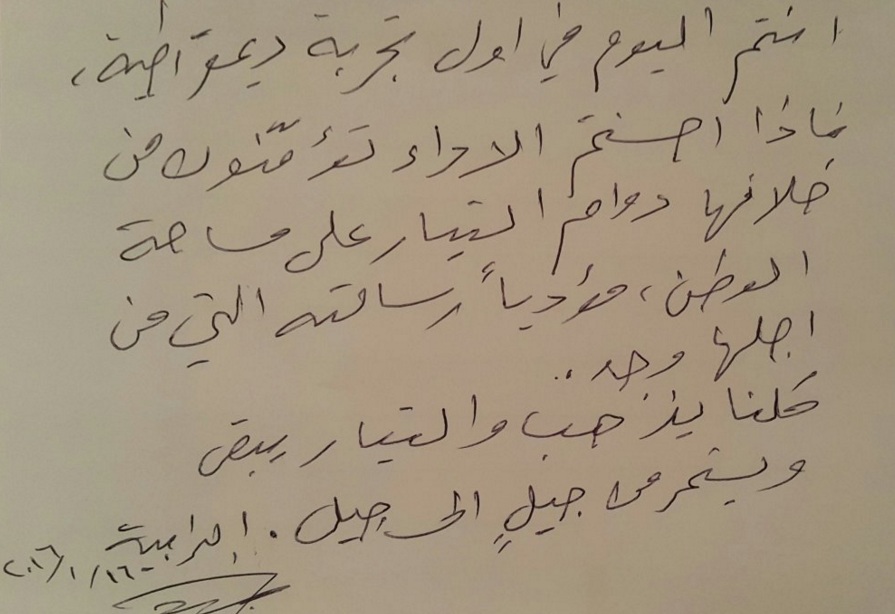 انتم اليوم في اول تجربة ديمقراطية،
فاذا احسنتم الاداء تؤمّنون من
خلالها دوام التيار على مساحة
الوطن، مؤدياً رسالته التي من
اجلها وجد..
كلنا يذهب والتيار يبقى
ويستمر من جيلٍ الى جيل. الرابية ٢٠١٦/١/١٦